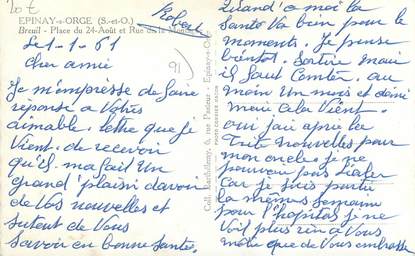 20€
Robert
EPINAY-s-ORGE (S.-et-O.)
Breuil - Place du 24-Août et Rue de la Montagne
Le 1-1-61
91
Cher amie
Je m'empresse de faire
réponse a Votre
aimable lettre que je
Vient de recevoir
qu'il ma fait Un
grand plaisir davoir
de Vos nouvelles et
surtout de Vous
Savoir en bonne Santé.
Coll. Barthélemy, 6, rue Pasteur - Epinay-s-Orge
Quand a moi la
Santé Va bien pour le
moments. Je pense
bientot Sortire mais
il faut Comter au
moin Un mois et demi
mais cela Vient
oui jai apris la
Triste nouvelles pour
mon oncle je ne
pouvais pas
Car je suis partie
la même Semaine
pour l'hopital je ne
Voit plus rien a Vous
metre que de Vous embrasse